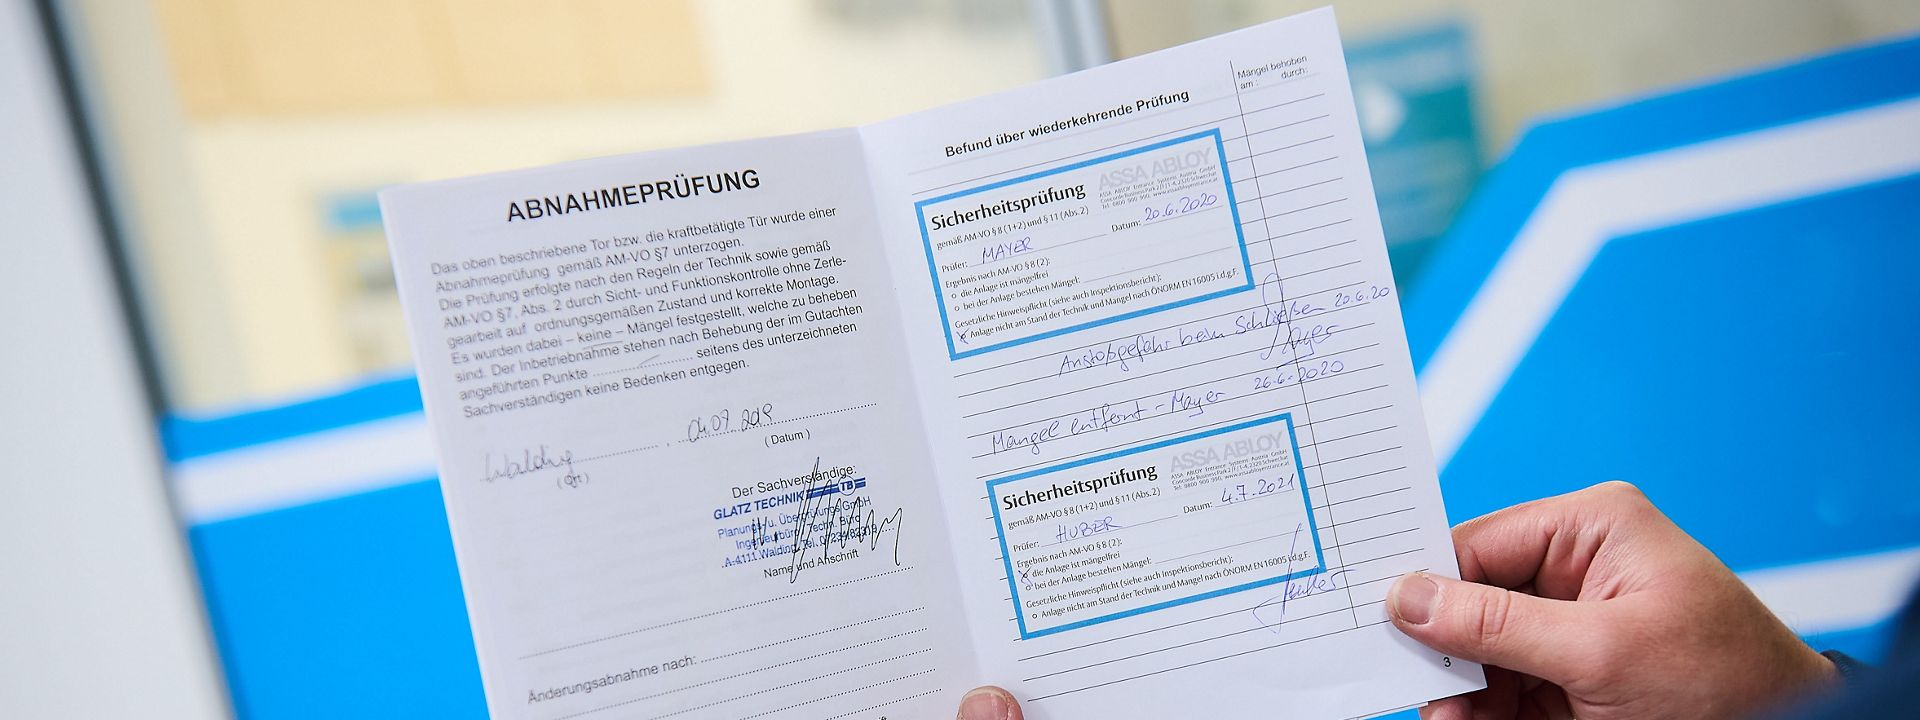 ABNAHMEPRÜFUNG
Das oben beschriebene Tor bzw. die kraftbetätigte Tür wurde einer
Abnahmeprüfung gemäß AM-VO §7 unterzogen.
Die Prüfung erfolgte nach den Regeln der Technik sowie gemäß
AM-VO §7, Abs. 2 durch Sicht- und Funktionskontrolle ohne Zerle-
gearbeit auf ordnungsgemäßen Zustand und korrekte Montage.
Es wurden dabei – keine – Mängel festgestellt, welche zu beheben
sind. Der Inbetriebnahme stehen nach Behebung der im Gutachten
angeführten Punkte .................... seitens des unterzeichneten
Sachverständigen keine Bedenken entgegen.
Walding, 04.07.2019
(Ort) (Datum)
Der Sachverständige:
GLATZ TECHNIK TB
Planungs/u. Überprüfungs GmbH
Ingenieurbüro Techn. Büro
A-4111 Walding, Tel.
Name und Anschrift
Änderungsabnahme nach:
Befund über wiederkehrende Prüfung
Mängel behoben
am : durch:
ASSA ABLOY
ASSA ABLOY Entrance Systems Austria GmbH
Sicherheitsprüfung
gemäß AM-VO § 8 (1+2) und § 11 (Abs.2)
Prüfer: MAYER Datum: 20.6.2020
Ergebnis nach AM-VO § 8 (2):
o die Anlage ist mängelfrei
o bei der Anlage bestehen Mängel:
Gesetzliche Hinweispflicht (siehe auch Inspektionsbericht);
Anlage nicht am Stand der Technik und Mangel nach ÖNORM EN 16005 i.d.g.F.
Anstoßgefahr beim Schließen 20.6.20
Mayer
Mangel entfernt - Mayer 26.6.2020
ASSA ABLOY
ASSA ABLOY Entrance Systems Austria GmbH
Sicherheitsprüfung
gemäß AM-VO § 8 (1+2) und § 11 (Abs.2)
Prüfer: HUBER Datum: 4.7.2021
Ergebnis nach AM-VO § 8 (2):
die Anlage ist mängelfrei
bei der Anlage bestehen Mängel:
Gesetzliche Hinweispflicht (siehe auch Inspektionsbericht);
o Anlage nicht am Stand der Technik und Mangel nach ÖNORM EN 16005 i.d.g.F.
Huber
3